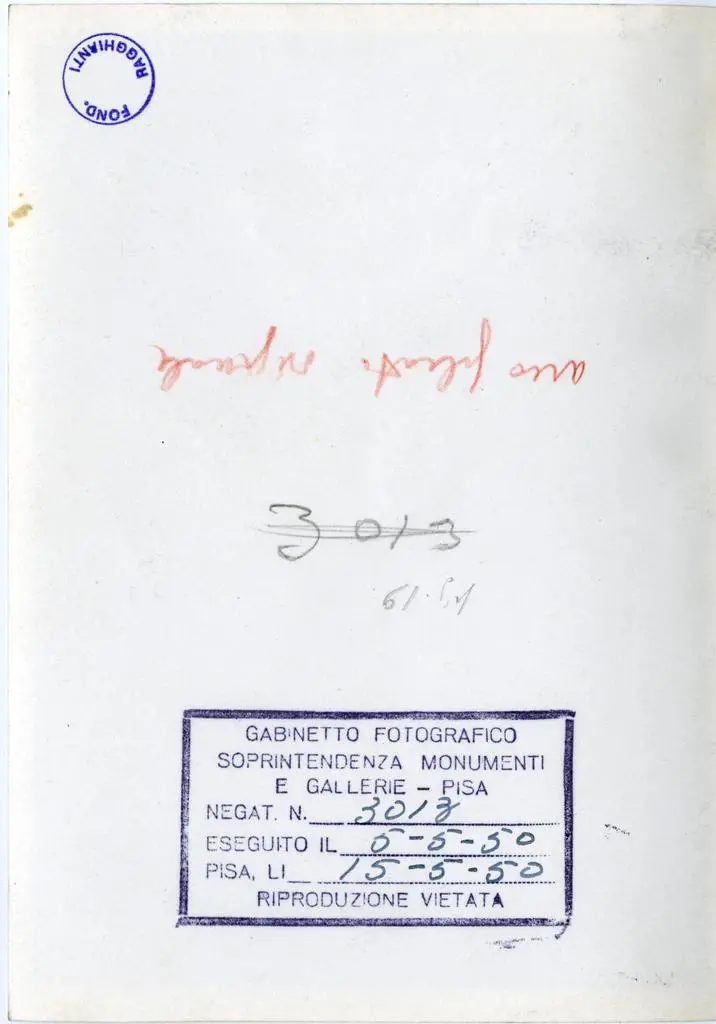 FOND. RAGGHIANTI
3013
GABINETTO FOTOGRAFICO
SOPRINTENDENZA MONUMENTI
E GALLERIE – PISA
NEGAT. N. 3013
ESEGUITO IL 5-5-50
PISA, LI 15-5-50
RIPRODUZIONE VIETATA